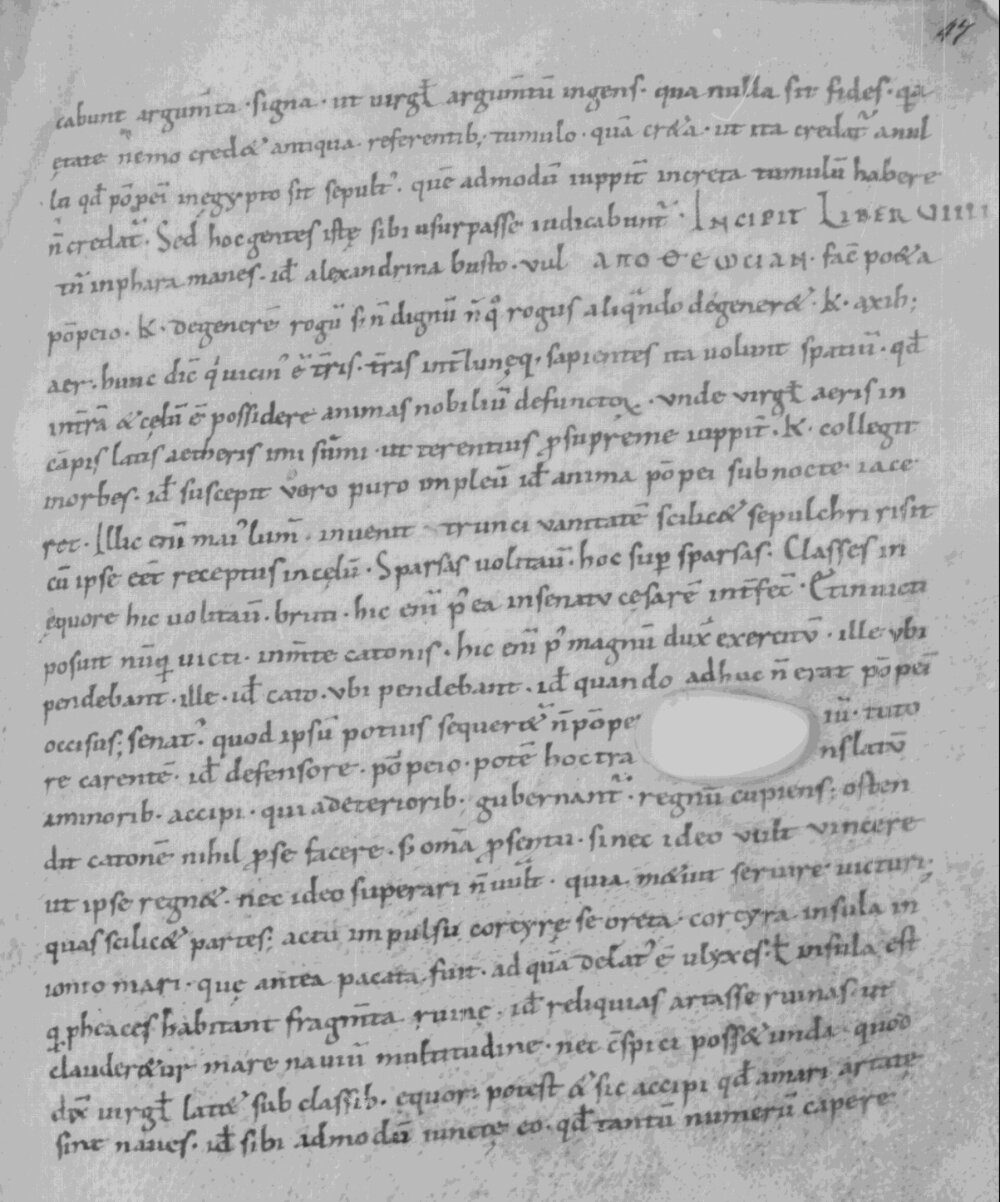 47
cabunt argum̄ta · signa · ut uirgł argum̄tū ingens · qua nulla sit fides · q̄a
ętate nemo cred& antiqua referentib; tumulo · quā cr&a · ut ita credat᷑ a nul
la qđ pōpei in egypto sit sepult᷑ · quē admodū iuppit̄ in creta tumulū habere
n̄ credat᷑ · Sed hoc gentes istę sibi usurpasse iudicabunt᷑ · INCIPIT LIBER VIIII
ut̄ in phara manes · iđ alexandrina busto · uul ΑΠΟΘΕΩCΙΑΝ · fac̄ po&a
pōpeio · K · degenerē rogū s; n̄ dignū rogus aliqn̄do degener& · K · axib;
aer · hunc dic̄ q' uicin᷑ ē t̄ris · t̄ras int̄ lunęq · sapientes ita uolunt spatiū · qđ
int̄rā & cęlū ē possidere animas nobiliū defunctoꝝ · unde uirgł aeris in
cāpis latis aetheris imi sūmi · ut terentius ꝓ supreme iuppit̄ · K · collegit
morbes · iđ suscepit uero puro inpleū iđ anima pōpei sub nocte iace
ret · Illic enī mai᷑ lum̄ · inuenit trunci uanitatē scilic& sepulchri risit
cū ipse eēt receptus in cęlū · Sparsas uolitaū · hoc suꝑ sparsas · Classes in
equore hic uolitaū · bruti · hic enī p᷑ ea in senatu cęsarē int̄fec̄ · Et inuicti
posuit nūq̄ uicti · in m̄te catonis · hic enī p᷑ magnū dux̄ exercitū · ille ubi
pendebant · ille · iđ cato · ubi pendebant · iđ quando adhuc n̄ erat pōpei᷑
occisus; senat᷑ · quod ipsū potius sequer&᷑ n̄ pōpe iū · tuto
re carentē · iđ defensore · pōpeio · potē hoc tra nslatū
a minorib · accipi · qui a deteriorib · gubernant᷑ · regnū cupiens; osten
dit catonē nihil ꝓ se facere · s; om̄a ꝓ senatu · si nec ideo uult uincere
ut ipse regn& · nec ideo superari n̄ uult · quia m&uit seruire uicturi;
quas scilic& partes; actu impulsu corcyrę se oreta · corcyra insula in
ionio mari · quę antea pacata fuit · ad quā delat᷑ ē ulyxes · ł insula est
q̄ pheaces habitant fragm̄ta ruinę · iđ reliquias artasse ruinas ut
clauder&ur mare nauiū multitudine · nec c̄spici poss& unda · quod
dx̄ uirgł lat& sub classib · equor: potest & sic accipi qđ amari artatę
sint naues · iđ sibi admodū iunctę eo · qđ tantū numerū capere